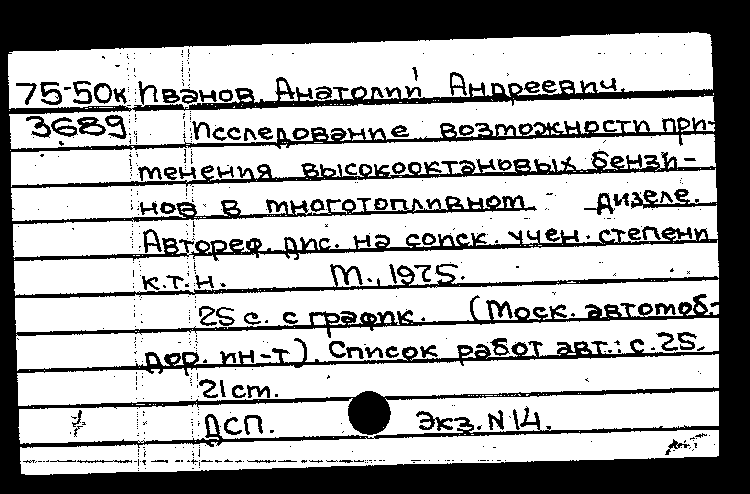 75-50к Иванов, Анатолий Андреевич.
3689 Исследование возможности при-
менения высокооктановых бензи-
нов в многотопливном дизеле.
Автореф. дис. на соиск. учен. степени
к.т.н. М., 1975.
25 с. с график. (Моск. автомоб.-
дор. ин-т). Список работ авт.: с. 25.
21 см.
ДСП. Экз. N 14.